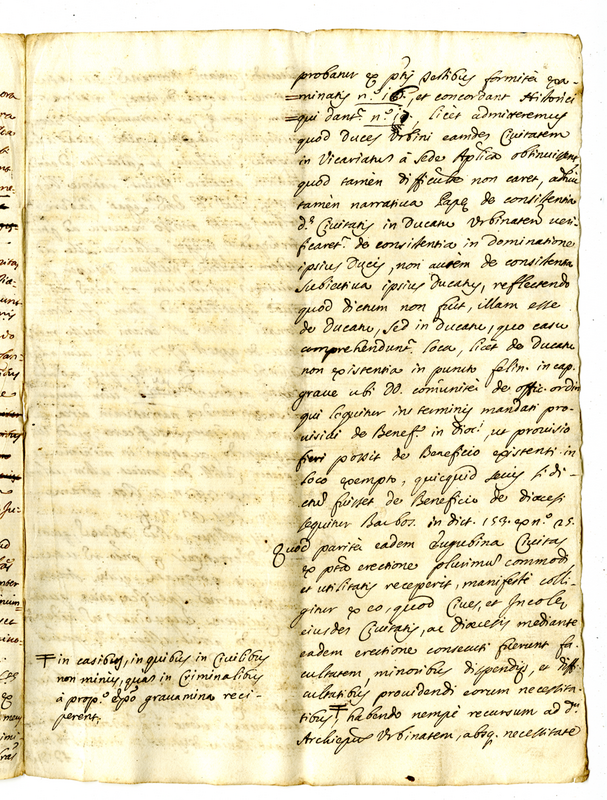 probatur ex ptis testibus formiter exa-
=minatis n.º 16., et concordant Historici
=qui dantr. n.º 19, licet admitteremus
quod Duces Urbini eamdem Civitatem
in Vicariatus à Sede Aplica obtinuissent,
quod tamen difficultate non caret, adhuc
tamen narrativa Papę de consistentia
d.ę Civitatis in Ducatu Urbinaten veri-
ficaretr. de consistentia in dominatione
ipsius Ducis, non autem de consistentia
subiectiva ipsius Ducatus, reflectendo
quod dictum non fuit, illam esse
de Ducatu, sed in Ducatu, quo casu
comprehendunt. loca, licet de Ducatu
non existentia in puncto felin. in cap.
grave ubi DD. comuniter de offic. ordin
qui loquitur in terminis mandati pro-
visidi de Benef.º in dioci, ut provisio
fieri possit de Beneficio existenti in
loco exempto, quicquid secus si di-
ctu fuisset de Beneficio de diocesi
sequitur Barbos. in dict. 153. ex n.º 25.
Quod pariter eadem Eugubina Civitas
ex pta erectione plurimum commodi
et utilitatis receperit, manifestè colli-
gitur ex eo, quod Cives, et Incolę
eiusdem Civitatis, ac dioecesis mediante
eadem erectione consecuti fuerunt fa-
cultatem, minoribus dispendijs, et diffi-
cultatibus providendi eorum necessita-
tibus ╤, habendo nempè recursum ad d.um
Archiepum Urbinatem, absq. necessitate
╤ in casibus, in quibus in Civilibus
non minus, quam in Criminalibus
à prop.º Epo gravamina reci-
perent,